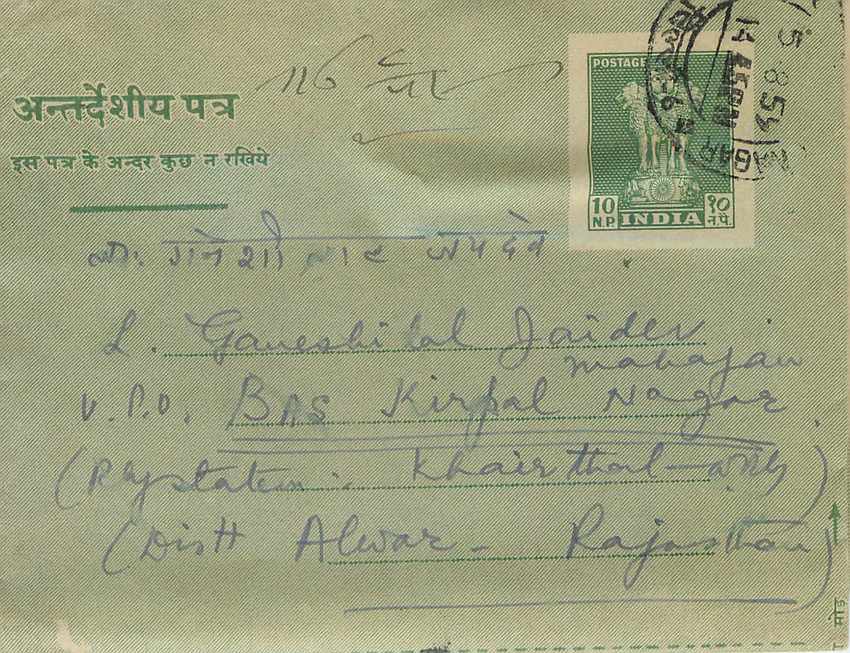 116
अन्तर्देशीय पत्र
इस पत्र के अन्दर कुछ न रखिये
POSTAGE
10 N.P. INDIA १० न.पै.
5 8 5
14
ला. गनेशी लाल जयदेव
L. Ganeshilal Jaidev
Mahajan
V.P.O. BAS Kirpal Nagar
(Rly station: Khairthal
(Distt Alwar - Rajasthan)
मोड़